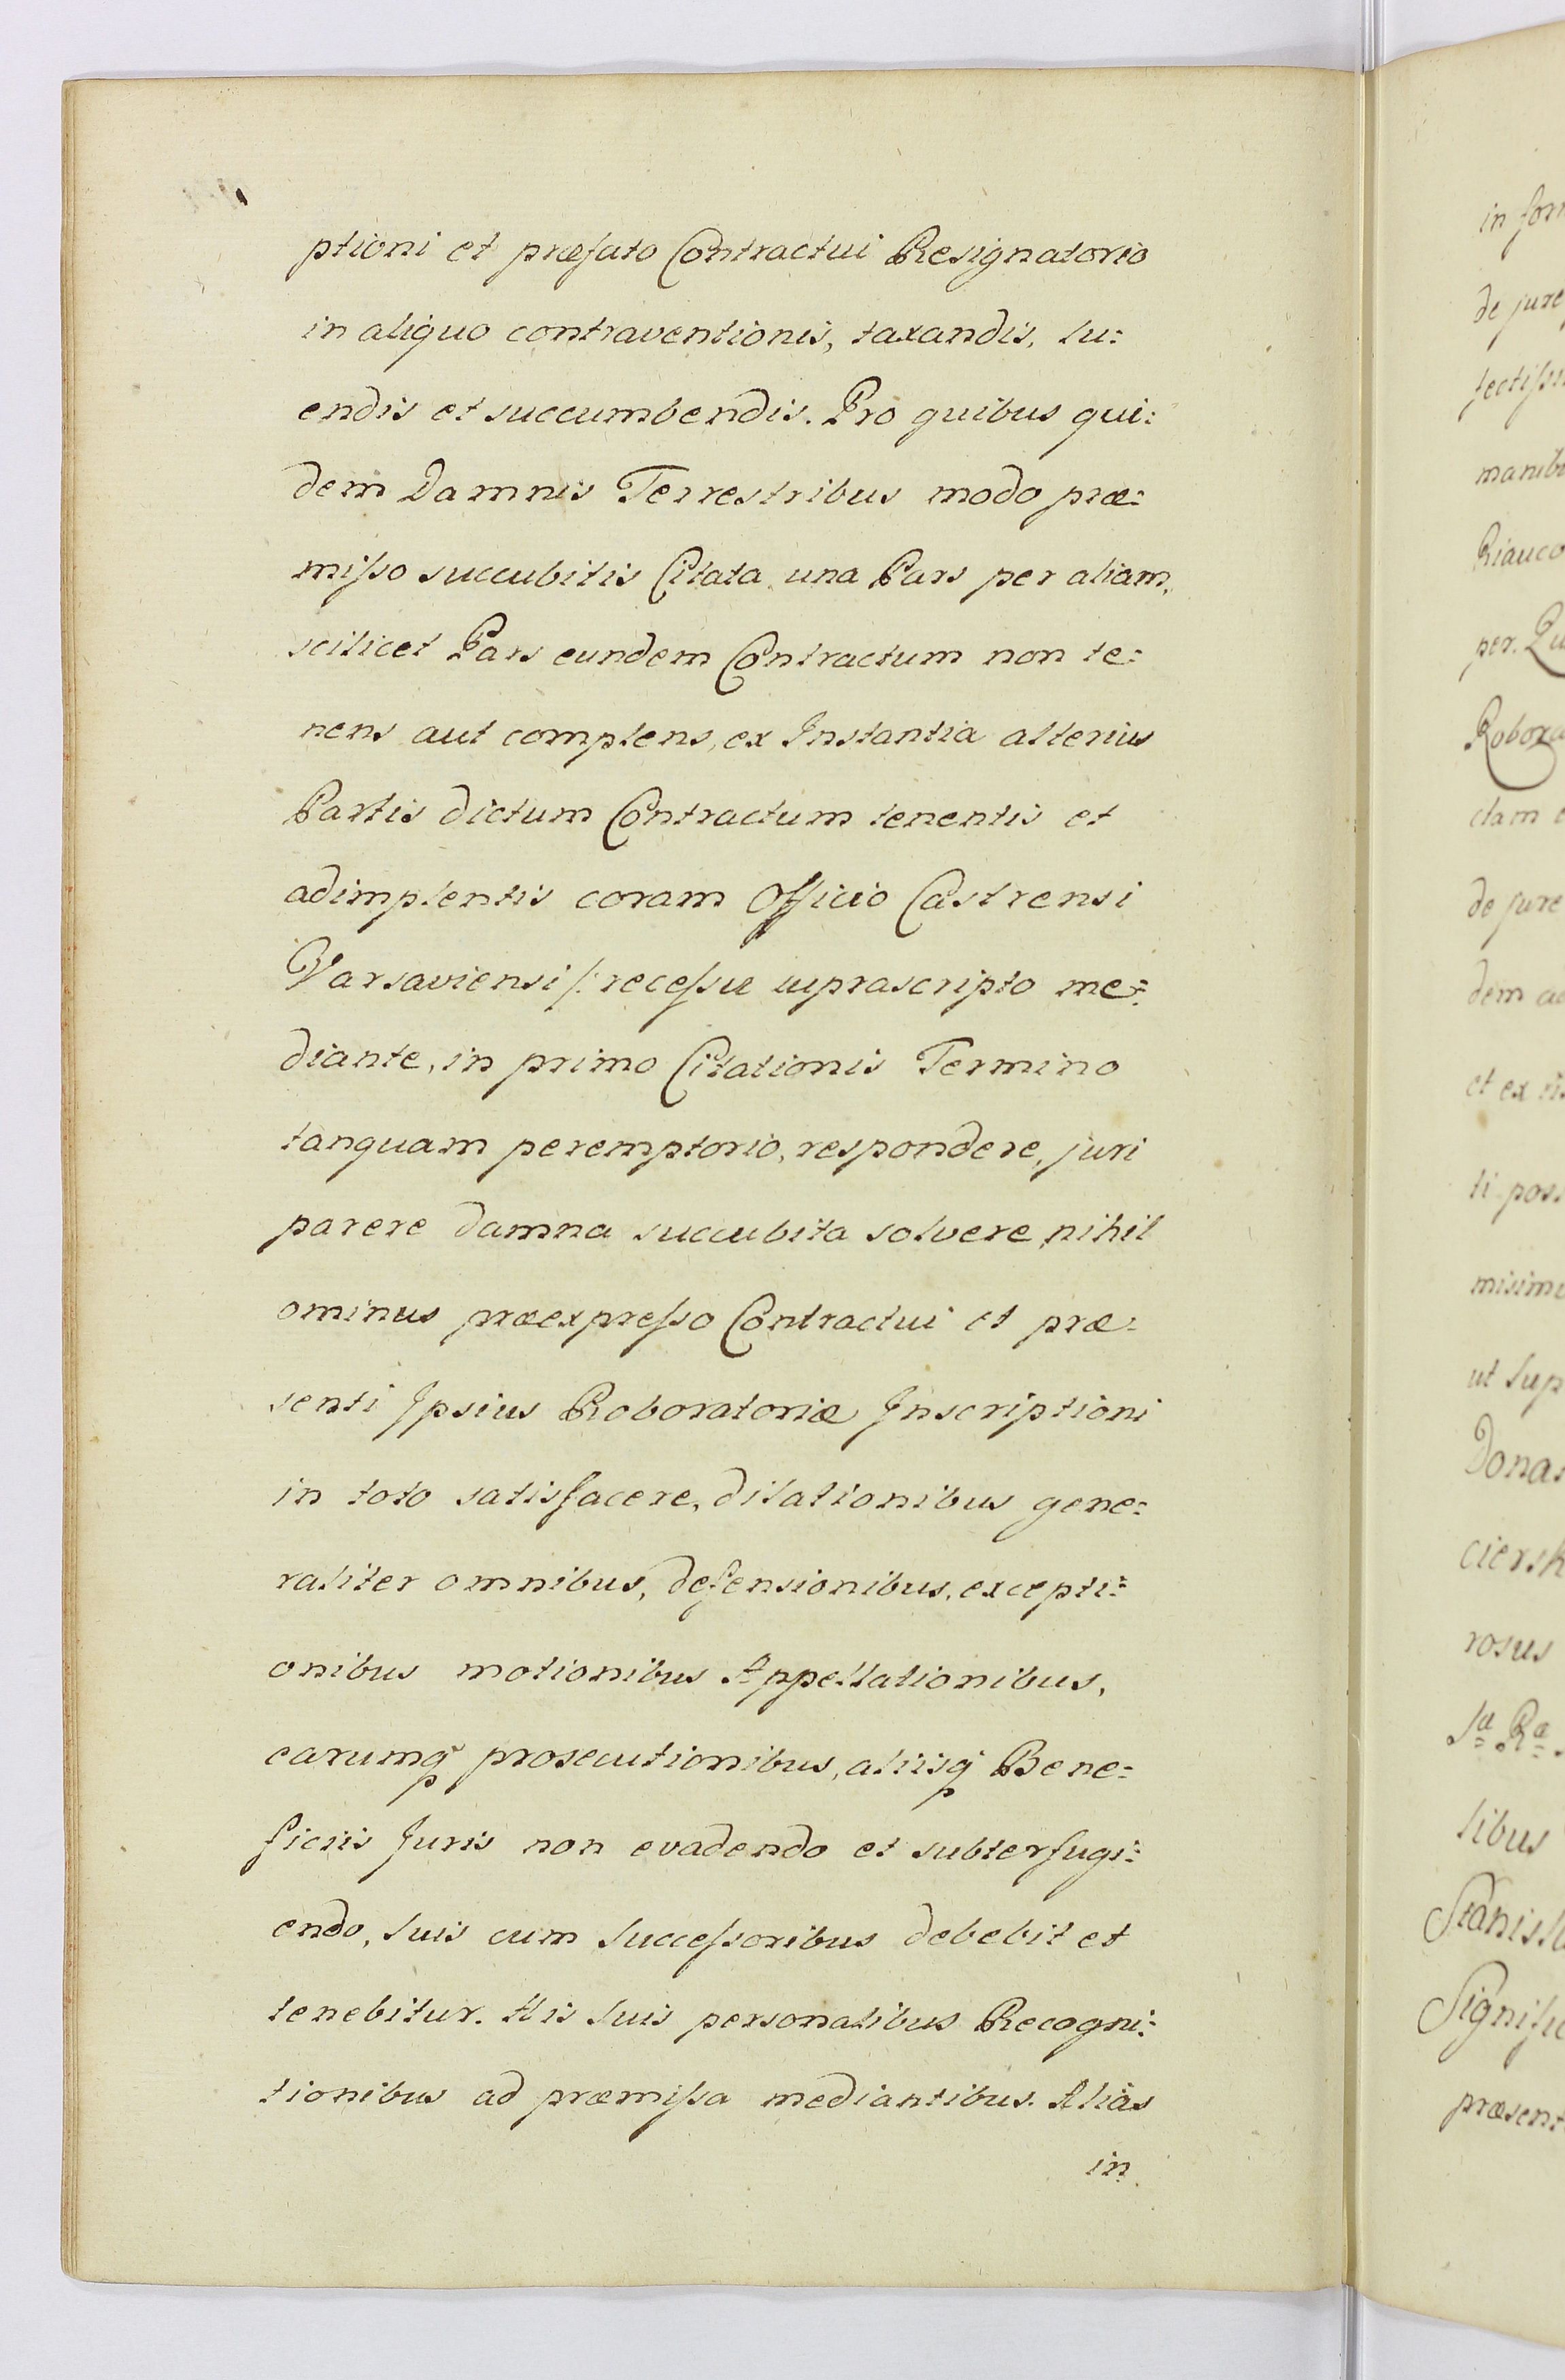 ptioni et præfato Contractui Resignatorio
in aliquo contraventionis, taxandis, lu:
endis et succumbendis. Pro quibus qui:
dem Damnis Terrestribus modo præ:
misso succubitis Citata una Pars per aliam,
scilicet Pars eundem Contractum non te:
nens aut complens, ex Instantia alterius
Partis dictum Contractum tenentis et
adimplentis coram Officio Castrensi
Varsaviensi /: recessu uprascripto me:
diante, in primo Citationis Termino
tanquam peremptorio, respondere, juri
parere damna succubita solvere nihil
ominus præexpresso Contractui et præ:
senti Ipsius Roboratoriæ Inscriptioni
in toto satisfacere, dilationibus gene:
raliter omnibus, defensionibus, excepti:
onibus motionibus Appellationibus,
earumq prosecutionibus, aliisq Bene:
ficiis Juris non evadendo et subterfugi:
endo, suis cum Successoribus debebit et
tenebitur. His suis personalibus Recogni:
tionibus ad præmissa mediantibus. Aliàs
in
in for
de jure
lectissi
manib
Riauco
per. Qu
Robora
ctam
de jure
dem
et ex
ti pos
misim
ut sup
Dona
ciersk
rosus
Sa Ra
libus
Stanisl
Signifi
præsent